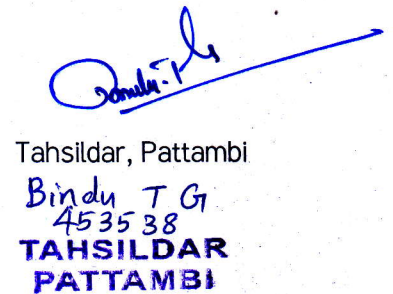 Tahsildar, Pattambi
Bindu T G
453538
TAHSILDAR
PATTAMBI